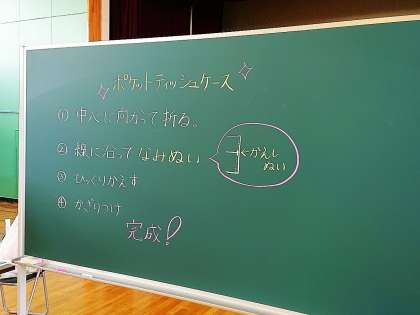 ポケットティッシュケース
① 中心に向かって折る。
② 線に沿ってなみぬい
←かえし
ぬい
③ ひっくりかえす
④ かざりつけ
完成!